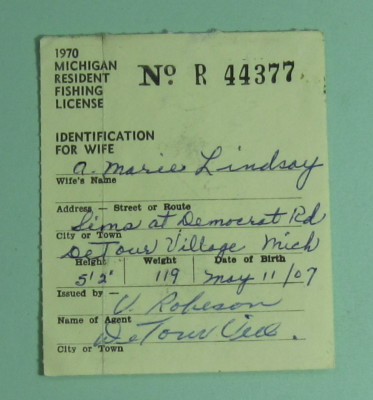 1970
MICHIGAN
RESIDENT
FISHING
LICENSE
No R 44377
IDENTIFICATION
FOR WIFE
A. Marie Lindsay
Wife's Name
Address — Street or Route
Sims at Democrat Rd
City or Town
DeTour Village Mich
Height Weight Date of Birth
5'2" 119 May 11/07
Issued by —
V. Robeson
Name of Agent
DeTour Vill.
City or Town